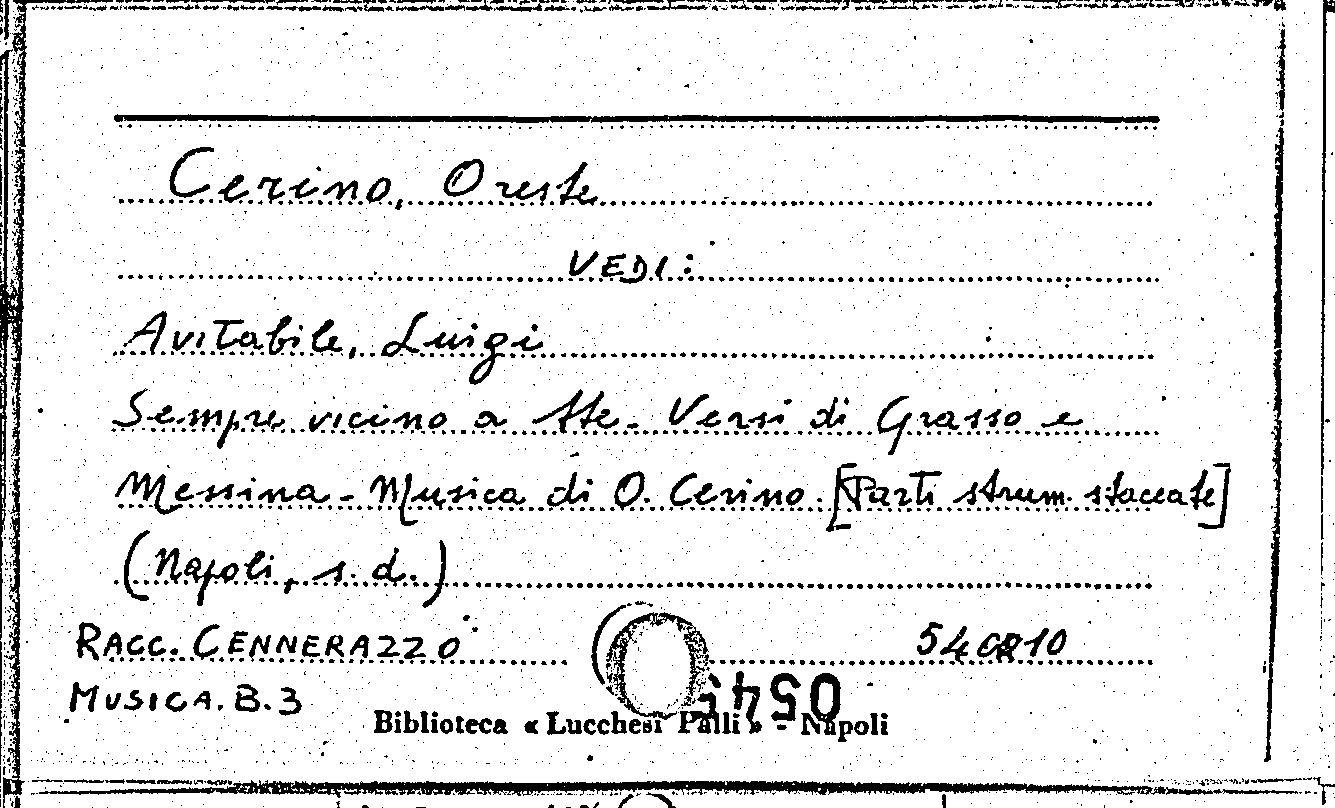 Cerino, Oreste
VEDI:
Avitabile, Luigi
Sempre vicino a tte. Versi di Grasso e
Messina - Musica di O. Cerino. [Parti strum. staccate]
(Napoli, s. d.)
RACC. CENNERAZZO
MUSICA. B. 3
Biblioteca « Lucchesi Palli » - Napoli